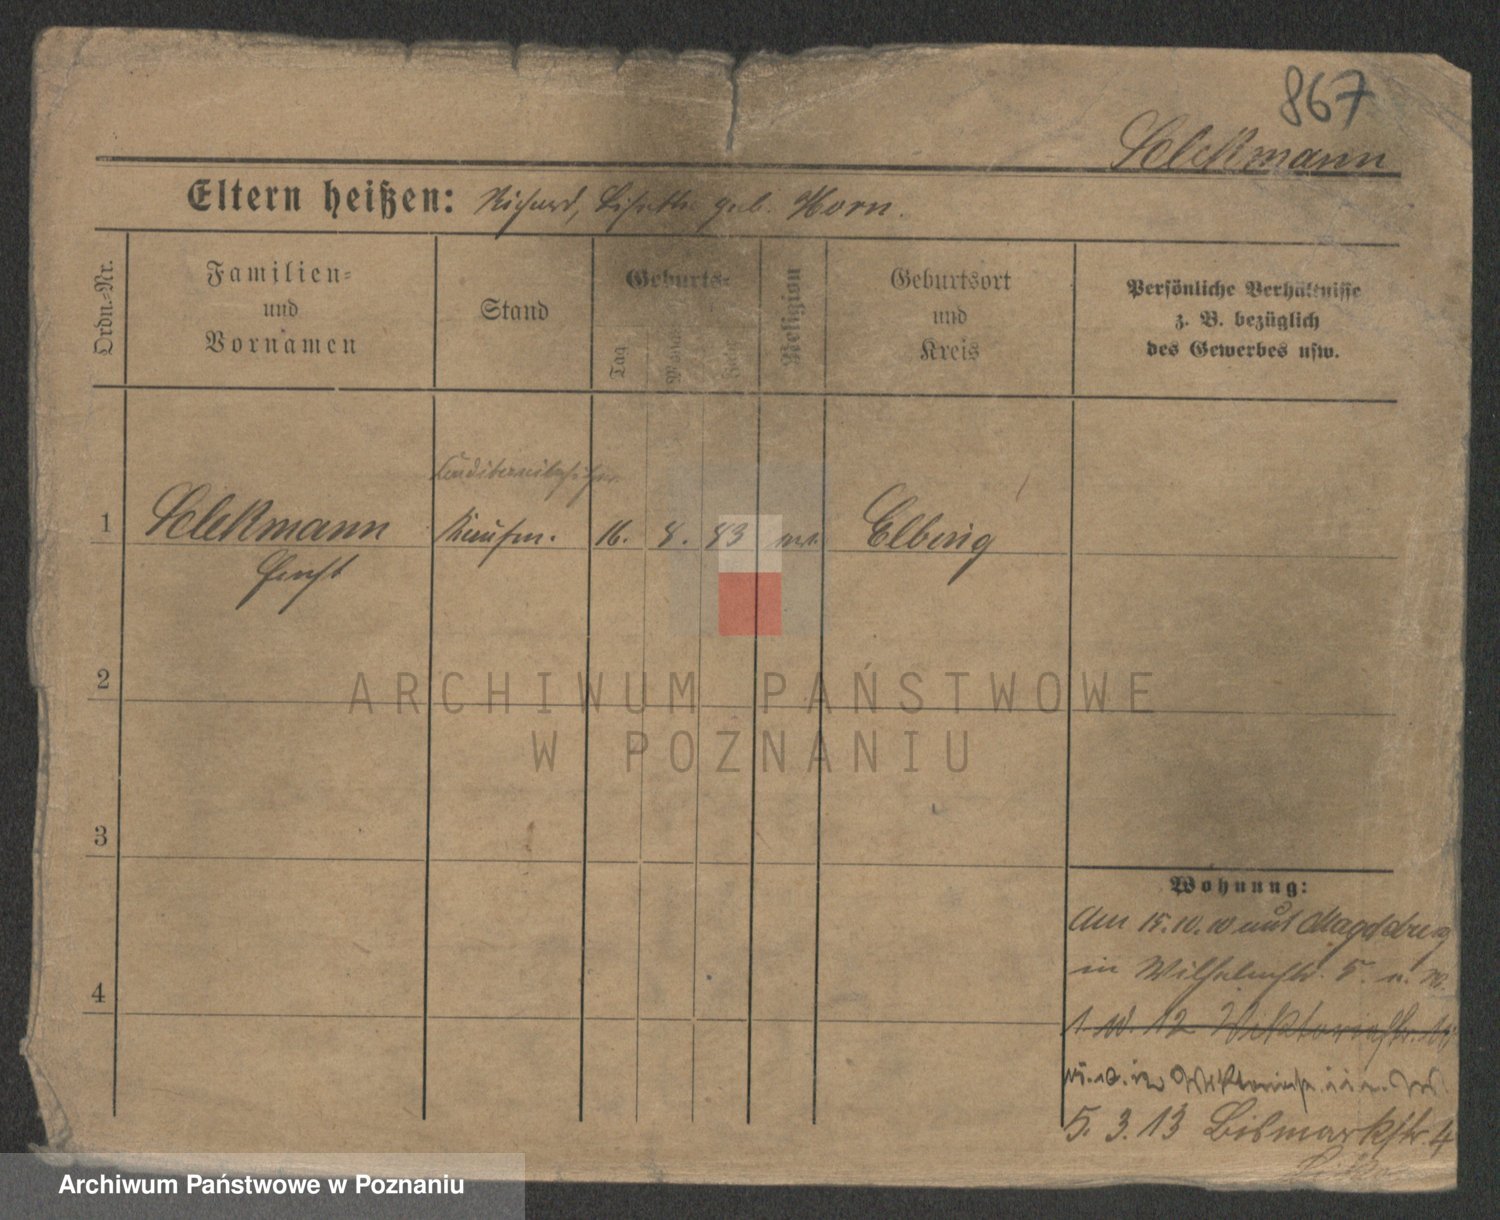 867
Selckmann
Eltern heißen: Richard, Lisette geb. Horn.
Ordn.-Nr.
Familien-
und
Vornamen
Stand
Geburts-
Tag
Monat
Jahr
Religion
Geburtsort
und
Kreis
Persönliche Verhältnisse
z. B. bezüglich
des Gewerbes usw.
Konditoreibesitzer
1 Selckmann Kaufm. 16. 8. 83 Elbing
Ernst
2
ARCHIWUM PAŃSTWOWE
W POZNANIU
3
Wohnung:
Am 15.10.10 aus Magdeburg
in Wilhelmstr. 5
4
1 10 12 Viktoriastr.
5. 3. 13 Bismarkstr. 4
Archiwum Państwowe w Poznaniu